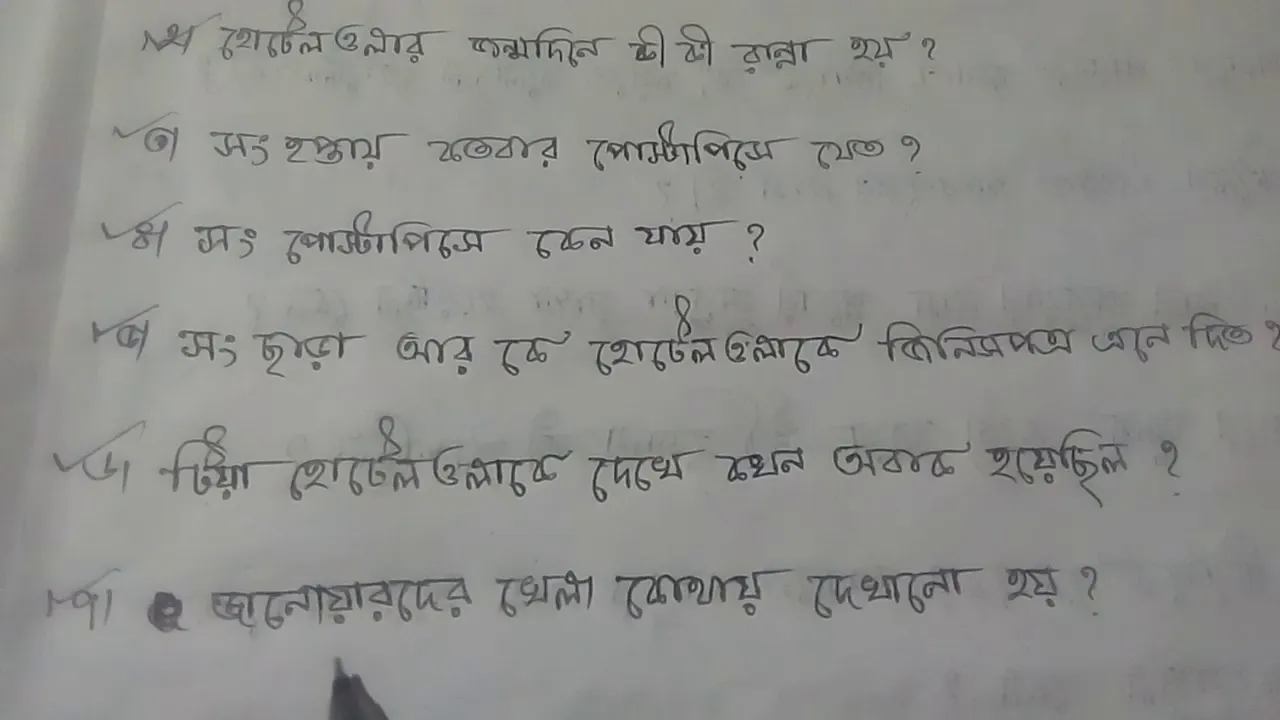 ২৷ হোটেলওলার জন্মদিনে কী কী রান্না হয় ?
৩৷ সং হপ্তায় কতবার পোস্টাপিসে যেত ?
৪৷ সং পোস্টাপিসে কেন যায় ?
৫৷ সং ছাড়া আর কে হোটেলওলাকে জিনিসপত্র এনে দিত ?
৬৷ টিয়া হোটেলওলাকে দেখে কখন অবাক হয়েছিল ?
৭৷ জানোয়ারদের খেলা কোথায় দেখানো হয় ?